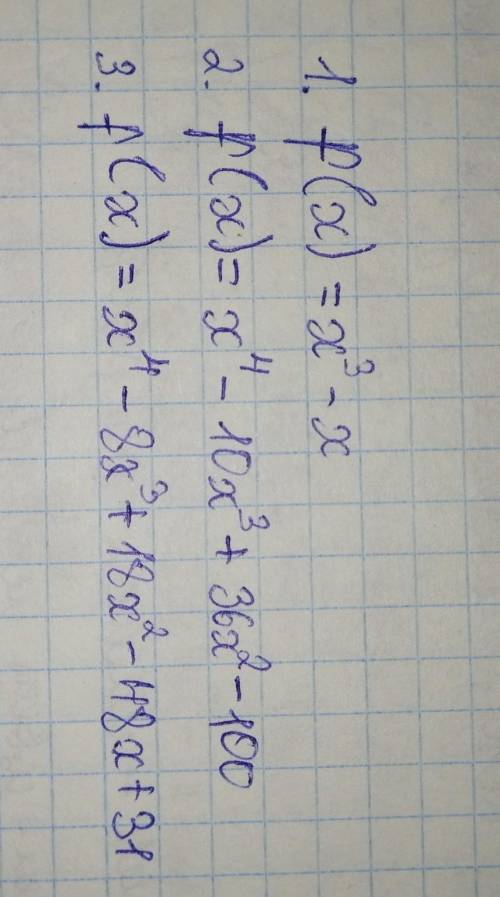 1. f(x) = x³ - x
2. f(x) = x⁴ - 10x³ + 36x² - 100
3. f(x) = x⁴ - 8x³ + 18x² - 48x + 31